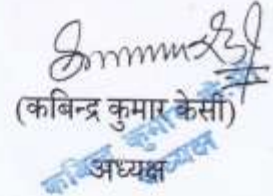 (कबिन्द्र कुमार केसी)
अध्यक्ष
कबिन्द्र कुमार के.सी.
अध्यक्ष